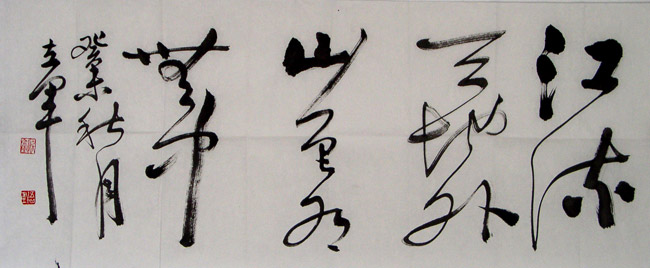 江流
天地外
山色有
無中
癸未秋月